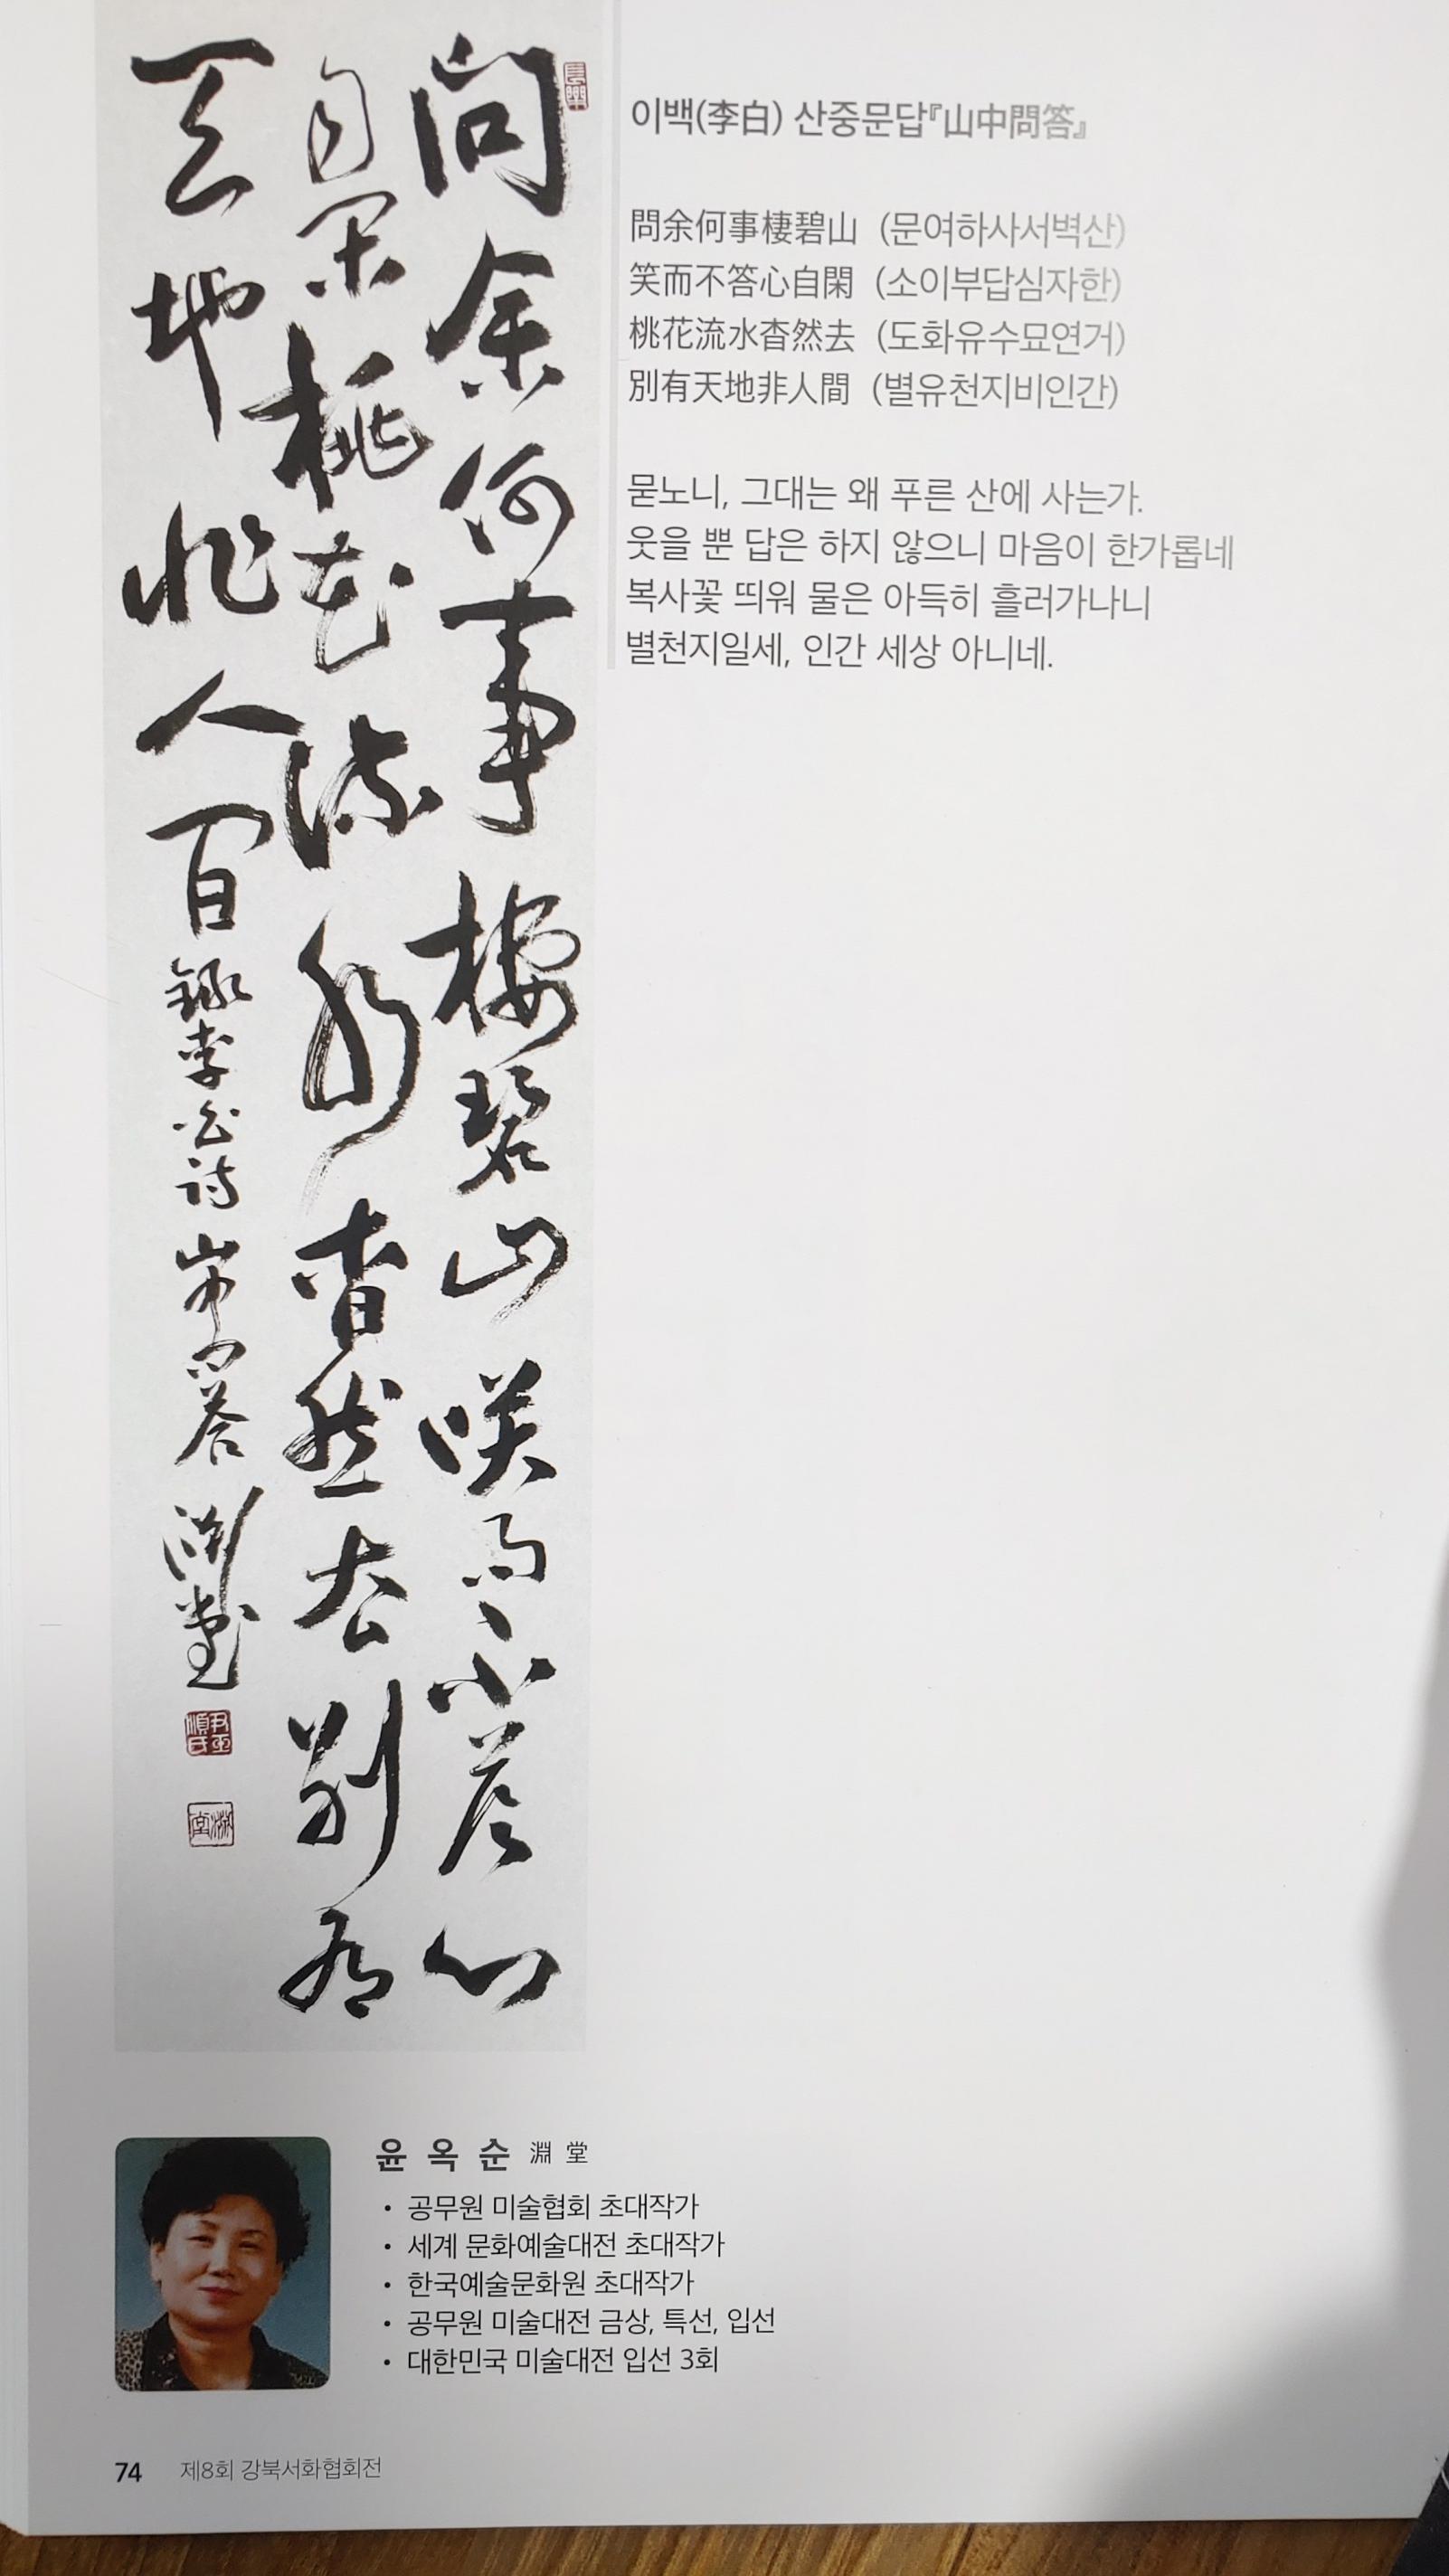 問余何事棲碧山咲而不答心
自閑桃花流水杳然去別有
天地非人間 錄李白詩山中問答 淵堂
이백(李白) 산중문답『山中問答』
問余何事棲碧山 (문여하사서벽산)
笑而不答心自閑 (소이부답심자한)
桃花流水杳然去 (도화유수묘연거)
別有天地非人間 (별유천지비인간)
묻노니, 그대는 왜 푸른 산에 사는가.
웃을 뿐 답은 하지 않으니 마음이 한가롭네
복사꽃 띄워 물은 아득히 흘러가나니
별천지일세, 인간 세상 아니네.
윤 옥 순 淵 堂
• 공무원 미술협회 초대작가
• 세계 문화예술대전 초대작가
• 한국예술문화원 초대작가
• 공무원 미술대전 금상, 특선, 입선
• 대한민국 미술대전 입선 3회
74 제8회 강북서화협회전